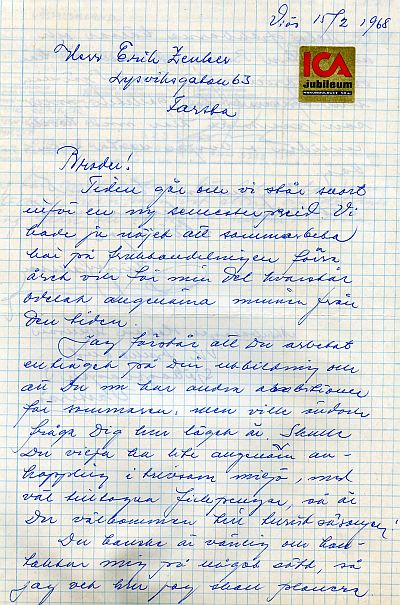 Viös 15/2 1968
ICA
Jubileum
Herr Erik Zenker
Lysviksgatan 63
Farsta
Broder!
Tiden går och vi står snart
inför en ny semesterperiod. Vi
hade ju nöjet att sammarbeta
här på förra
året och för min del kvarstår
odelat angenäma minnen från
den tiden.
Jag förstår att Du arbetat
enträget på Din utbildning och
att Du nu har andra ambitioner
för sommaren, men ville ändock
fråga Dig hur läget är. Skulle
Du vilja ha lite angenäm av-
koppling i trivsam miljö, med
väl tilltagna fickpengar, så är
Du välkommen till turistsäsongen!
Du kanske är vänlig och kon-
taktar mig på något sätt, så
jag vet hur jag skall planera.